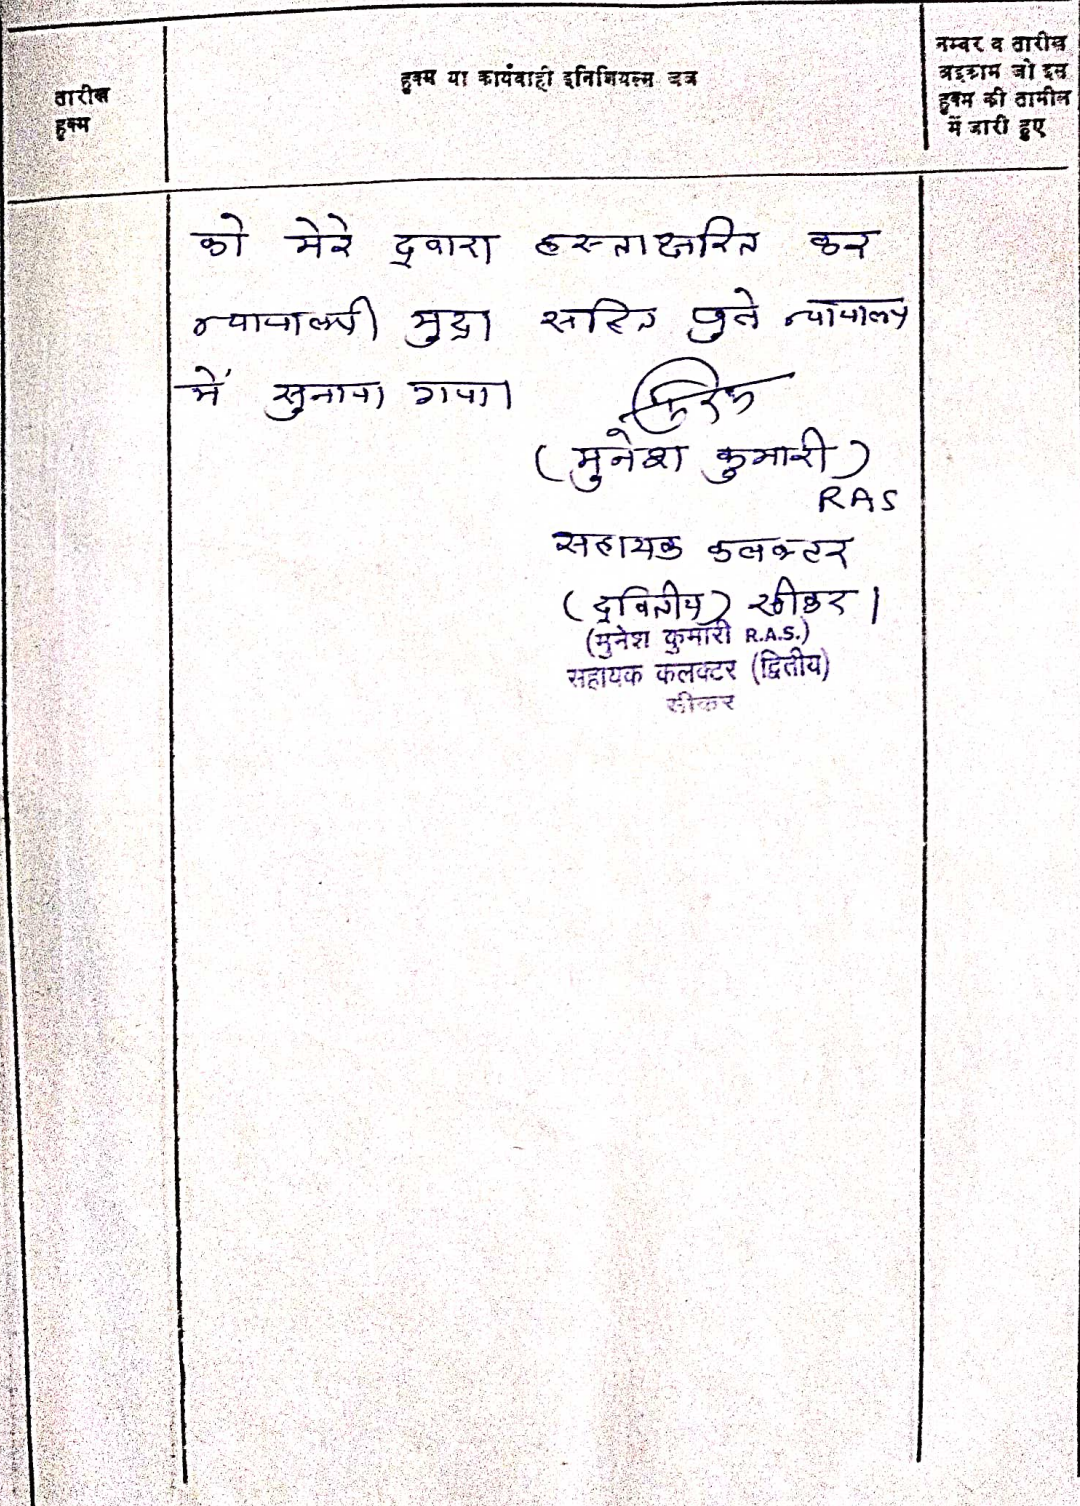 तारीख
हुक्म
हुक्म या कार्यवाही इनिशियल्स जज
नम्बर व तारीख
अहकाम जो इस
हुक्म की तामील
में जारी हुए
को मेरे द्वारा हस्ताक्षरित कर
न्यायालयी मुद्रा सहित खुले न्यायालय
में सुनाया गया।
(मुनेश कुमारी)
RAS
सहायक कलक्टर
(द्वितीय) सीकर।
(मुनेश कुमारी R.A.S.)
सहायक कलक्टर (द्वितीय)
सीकर